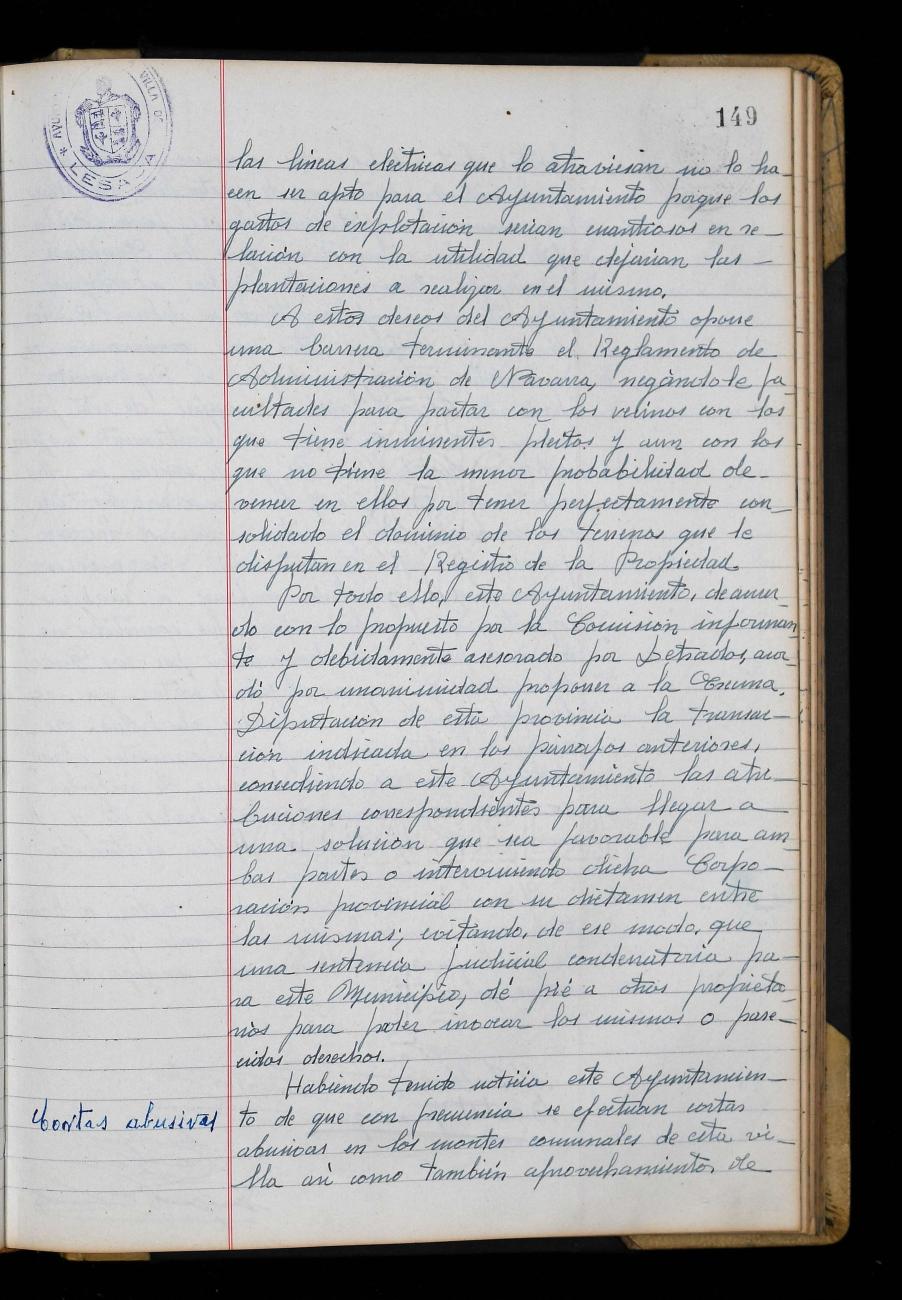 149
AYU VILLA DE
* LESACA
las líneas eléctricas que lo atraviesan no lo ha-
cen ser apto para el Ayuntamiento porque los
gastos de explotación serían cuantiosos en re-
lación con la utilidad que dejarían las
plantaciones a realizar en el mismo.
A estos deseos del Ayuntamiento opone
una barrera terminante el Reglamento de
Administración de Navarra, negándole fa
cultades para pactar con los vecinos con los
que tiene inminentes pleitos y aun con los
que no tiene la menor probabilidad de-
vencer en ellos por tener perfectamente con-
solidado el dominio de los terrenos que le
disputan en el Registro de la Propiedad.
Por todo ello, este Ayuntamiento, de acuer-
do con lo propuesto por la Comisión informan-
te y debidamente asesorado por Letrados, acor-
dó por unanimidad proponer a la Excma.
Diputación de esta provincia la transac-
ción indicada en los párrafos anteriores,
concediendo a este Ayuntamiento las atri-
buciones correspondientes para llegar a
una solución que sea favorable para am-
bas partes o interviniendo dicha Corpo-
ración provincial con su dictamen entre
las mismas; evitando, de ese modo, que
una sentencia judicial condenatoria pa-
ra este Municipio, dé pié a otros propieta-
rios para poder invocar los mismos o pare-
cidos derechos.
Habiendo tenido noticia este Ayuntamien-
Cortas abusivas
to de que con frecuencia se efectuan cortas
abusivas en los montes comunales de esta vi-
lla así como también aprovechamientos de